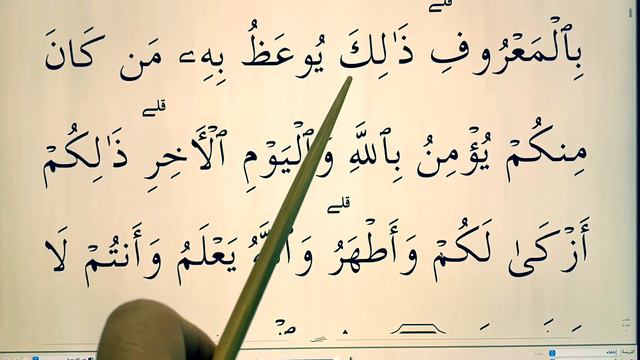 بِٱلۡمَعۡرُوفِۗ ذَٰلِكَ يُوعَظُ بِهِۦ مَن كَانَ
مِنكُمۡ يُؤۡمِنُ بِٱللَّهِ وَٱلۡيَوۡمِ ٱلۡأٓخِرِۗ ذَٰلِكُمۡ
أَزۡكَىٰ لَكُمۡ وَأَطۡهَرُۚ وَٱللَّهُ يَعۡلَمُ وَأَنتُمۡ لَا